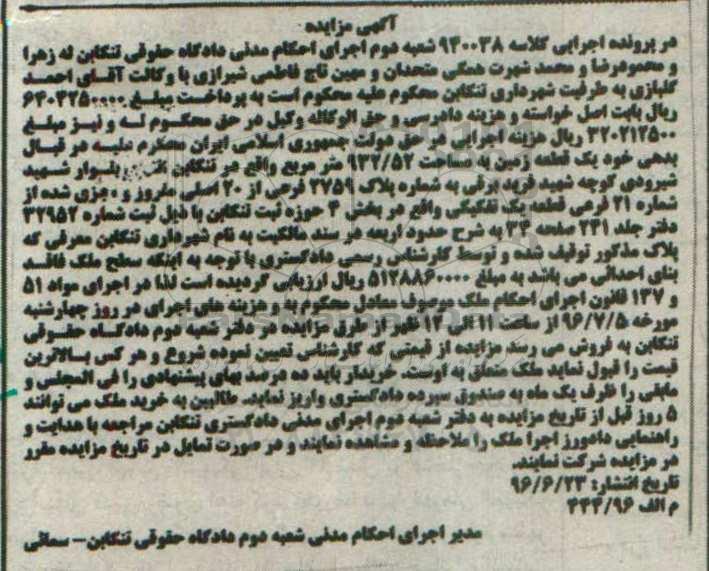 آگهی مزایده
در پرونده اجرایی کلاسه ۹۴۰۰۳۸ شعبه دوم اجرای احکام مدنی دادگاه حقوقی تنکابن له زهرا
و محمودرضا و محمد شهرت همگی متحدان و مهین تاج فاطمی شیرازی با وکالت آقای احمد
گلبازی به طرفیت شهرداری تنکابن محکوم علیه محکوم است به پرداخت مبلغ ۶۴۰۴۲۵۰۰۰۰
ریال بابت اصل خواسته و هزینه دادرسی و حق الوکاله وکیل در حق محکوم له و نیز مبلغ
۳۲۰۲۱۲۵۰۰ ریال هزینه اجرایی در حق دولت جمهوری اسلامی ایران محکوم علیه در قبال
بدهی خود یک قطعه زمین به مساحت ۹۳۲/۵۲ متر مربع واقع در تنکابن بلوار شهید
شیرودی کوچه شهید فرید برقی به شماره پلاک ۲۷۵۹ فرعی از ۲۰ اصلی مفروز و مجزی شده از
شماره ۲۱ فرعی قطعه یک تفکیکی واقع در بخش ۳ حوزه ثبت تنکابن با ذیل ثبت شماره ۳۲۹۵۲
دفتر جلد ۲۳۱ صفحه ۳۴ به شرح حدود اربعه در سند مالکیت به نام شهرداری تنکابن معرفی که
پلاک مذکور توقیف شده و توسط کارشناس رسمی دادگستری با توجه به اینکه سطح ملک فاقد
بنای احداثی می باشد به مبلغ ۵۱۲۸۸۶۰۰۰۰ ریال ارزیابی گردیده است لذا در اجرای مواد ۵۱
و ۱۳۷ قانون اجرای احکام ملک موصوف معادل محکوم به و هزینه های اجرای در روز چهارشنبه
مورخه ۹۶/۷/۵ از ساعت ۱۱ الی ۱۲ ظهر از طرق مزایده در دفتر شعبه دوم دادگاه حقوقی
تنکابن به فروش می رسد مزایده از قیمتی که کارشناس تعیین نموده شروع و هر کس بالاترین
قیمت را قبول نماید ملک متعلق به اوست. خریدار باید ده درصد بهای پیشنهادی را فی المجلس و
مابقی را ظرف یک ماه به صندوق سپرده دادگستری واریز نماید. طالبین به خرید ملک می توانند
۵ روز قبل از تاریخ مزایده به دفتر شعبه دوم اجرای مدنی دادگستری تنکابن مراجعه با هدایت و
راهنمایی دادورز اجرا ملک را ملاحظه و مشاهده نمایند و در صورت تمایل در تاریخ مزایده مقرر
در مزایده شرکت نمایند.
تاریخ انتشار: ۹۶/۶/۲۳
م الف ۴۴۴/۹۶
مدیر اجرای احکام مدنی شعبه دوم دادگاه حقوقی تنکابن – سمائی